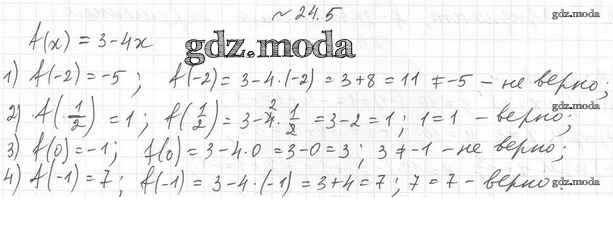 № 24.5
gdz.moda
f(x) = 3-4x
gdz.moda
1) f(-2) = -5; f(-2) = 3-4·(-2) = 3+8 = 11 ≠ -5 - не верно;
gdz.moda
2) f(1/2) = 1; f(1/2) = 3-4·1/2 = 3-2 = 1; 1 = 1 - верно;
3) f(0) = -1; f(0) = 3-4·0 = 3-0 = 3; 3 ≠ -1 - не верно;
4) f(-1) = 7; f(-1) = 3-4·(-1) = 3+4 = 7; 7 = 7 - верно.
gdz.moda